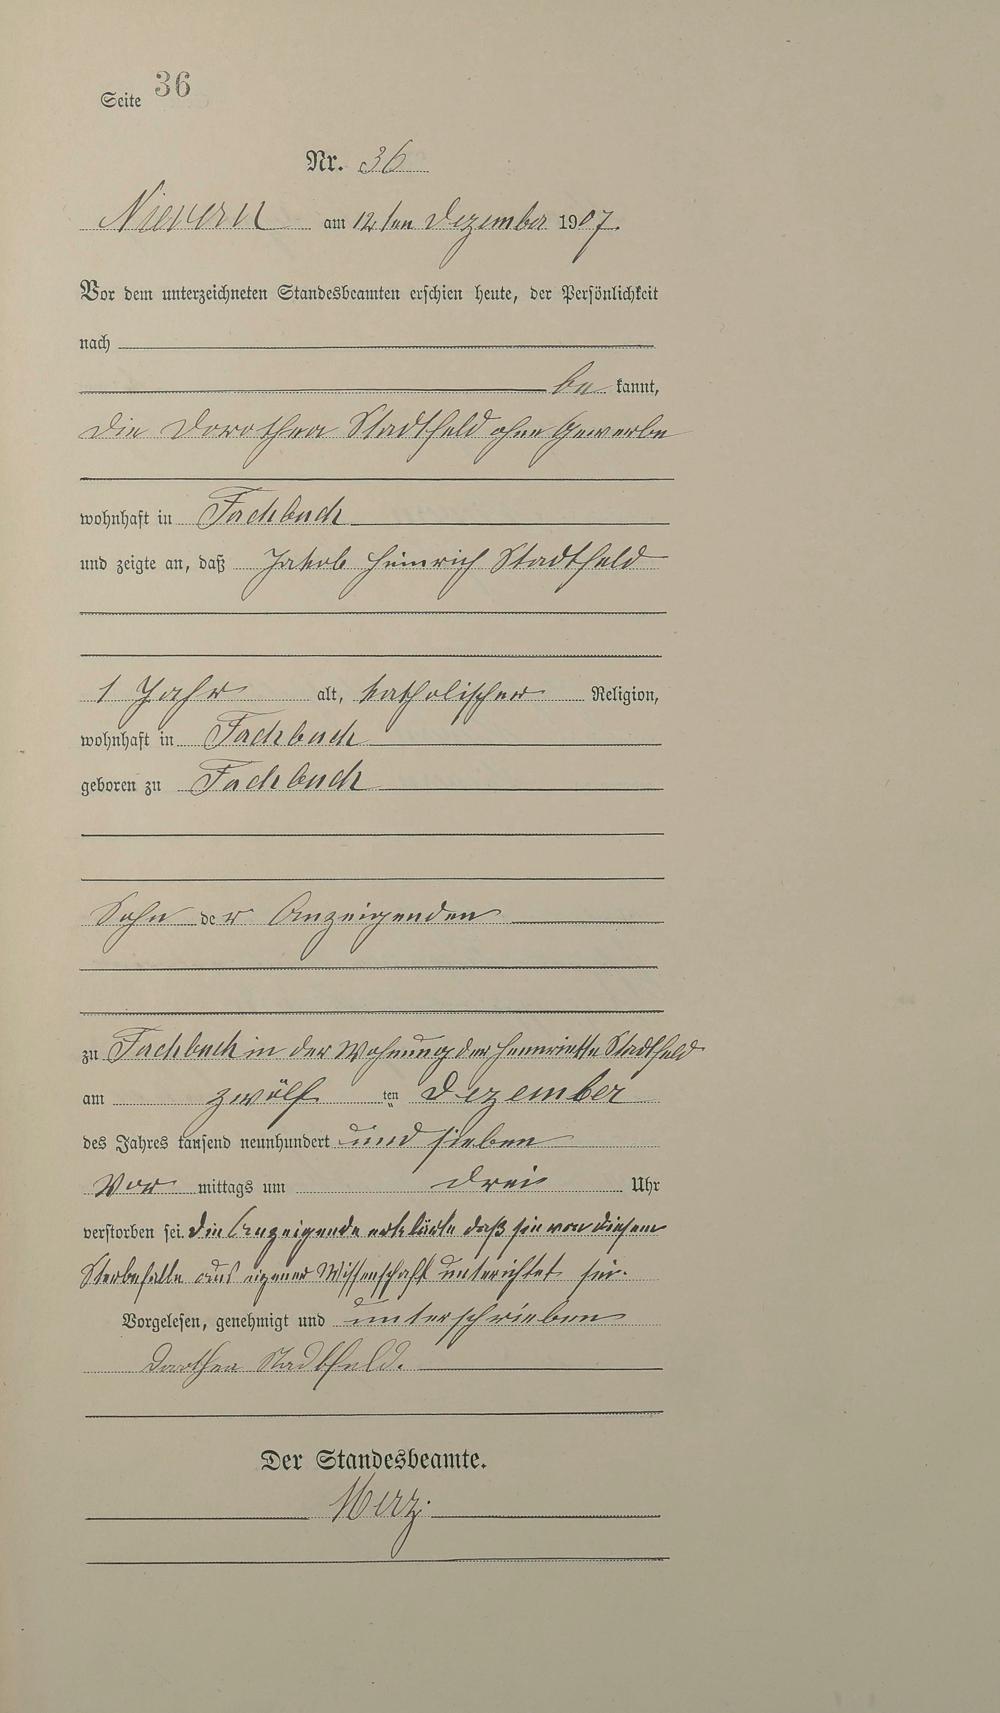 Seite 36
Nr. 36
Nievern am 12ten Dezember 1907.
Vor dem unterzeichneten Standesbeamten erschien heute, der Persönlichkeit
nach
be kannt,
die Dorothea Stadtfeld ohne Gewerbe
wohnhaft in Fachbach
und zeigte an, daß Jakob Heinrich Stadtfeld
1 Jahr alt, katholischer Religion,
wohnhaft in Fachbach
geboren zu Fachbach
Sohn der Anzeigenden
zu Fachbach in der Wohnung der Hennriette Stadtfeld
am zwölf ten Dezember
des Jahres tausend neunhundert und sieben
Vor mittags um drei Uhr
verstorben sei. Die Anzeigende erklärte daß sie von diesem
Sterbefalle aus eigener Wissenschaft unterichtet sei.
Vorgelesen, genehmigt und unterschrieben
Dorthea Stadtfeld.
Der Standesbeamte.
Merz.